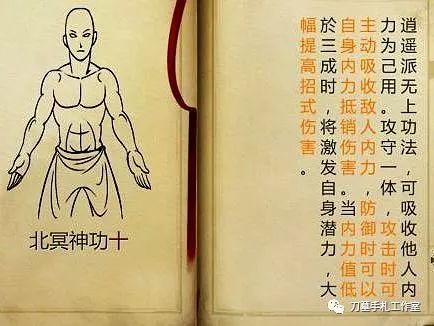 逍遥派无上功法，可吸收他人内
力为己用。攻守一体，攻击时可
主动吸收敌人内力，防御时可以
自身内力抵销伤害。当内力值低
於三成时，将激发自身潜力，大
幅提高招式伤害。
北冥神功十
手札工作室